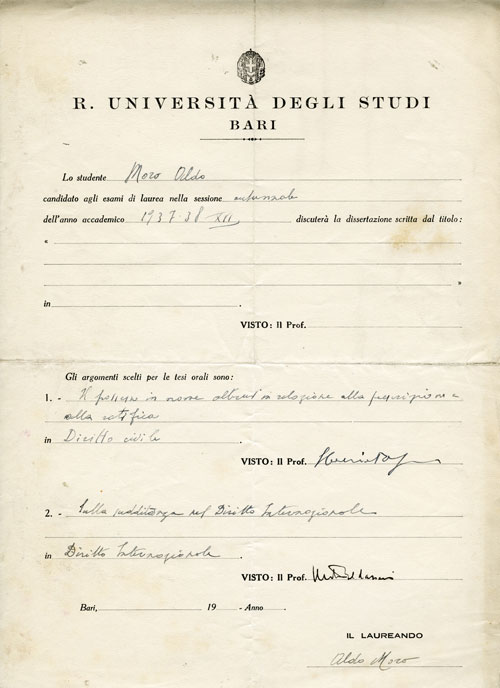 R. UNIVERSITÀ DEGLI STUDI
BARI
Lo studente Moro Aldo
candidato agli esami di laurea nella sessione autunnale
dell'anno accademico 1937-38 XVI discuterà la dissertazione scritta dal titolo:
«
»
in .
VISTO: Il Prof.
Gli argomenti scelti per le tesi orali sono:
1. - Il possesso in nome altrui in relazione alla
alla ratifica
in Diritto civile .
VISTO: Il Prof.
2. - Sulla sudditanza nel Diritto Internazionale
in Diritto Internazionale .
VISTO: Il Prof.
Bari, 19 - Anno .
IL LAUREANDO
Aldo Moro